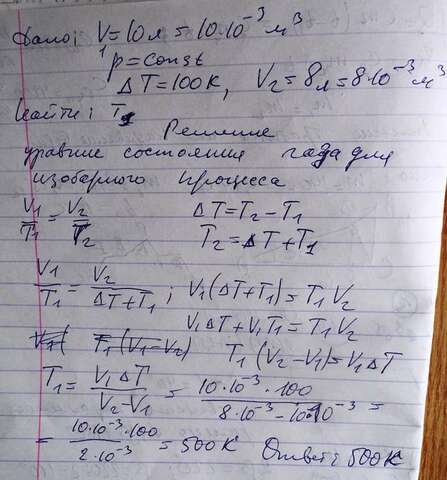 Дано: V₁=10л=10·10⁻³м³
p=const
ΔT=100K, V₂=8л=8·10⁻³м³
Найти: T₁
Решение
уравние состояния газа для
изобарного процесса
V₁/T₁ = V₂/T₂ ΔT=T₂-T₁
T₂=ΔT+T₁
V₁/T₁ = V₂/(ΔT+T₁); V₁(ΔT+T₁)=T₁V₂
V₁ΔT+V₁T₁=T₁V₂
T₁(V₁-V₂) T₁(V₂-V₁)=V₁ΔT
T₁ = V₁ΔT/(V₂-V₁) = 10·10⁻³·100/(8·10⁻³-10·10⁻³) =
= 10·10⁻³·100/(2·10⁻³) = 500K Ответ: 500K